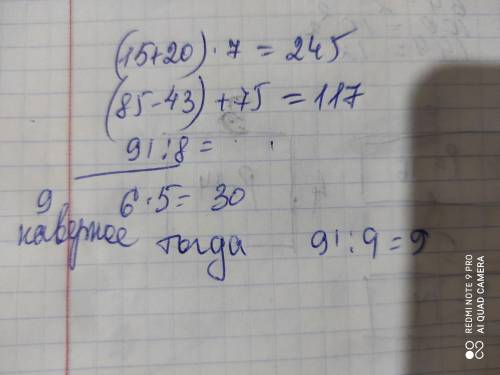 (15+20)·7=245
(85-43)+75=117
91:8=
9 6·5=30
наверное тогда 91:9=9
REDMI NOTE 9 PRO
AI QUAD CAMERA